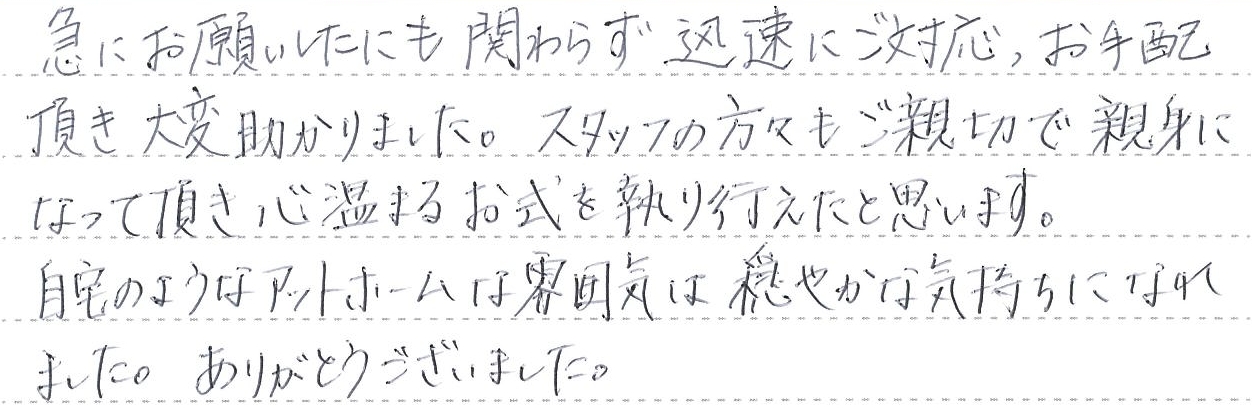 急にお願いしたにも関わらず迅速にご対応,お手配
頂き大変助かりました。スタッフの方々もご親切で親身に
なって頂き心温まるお式を執り行えたと思います。
自宅のようなアットホームな雰囲気は穏やかな気持ちになれ
ました。ありがとうございました。